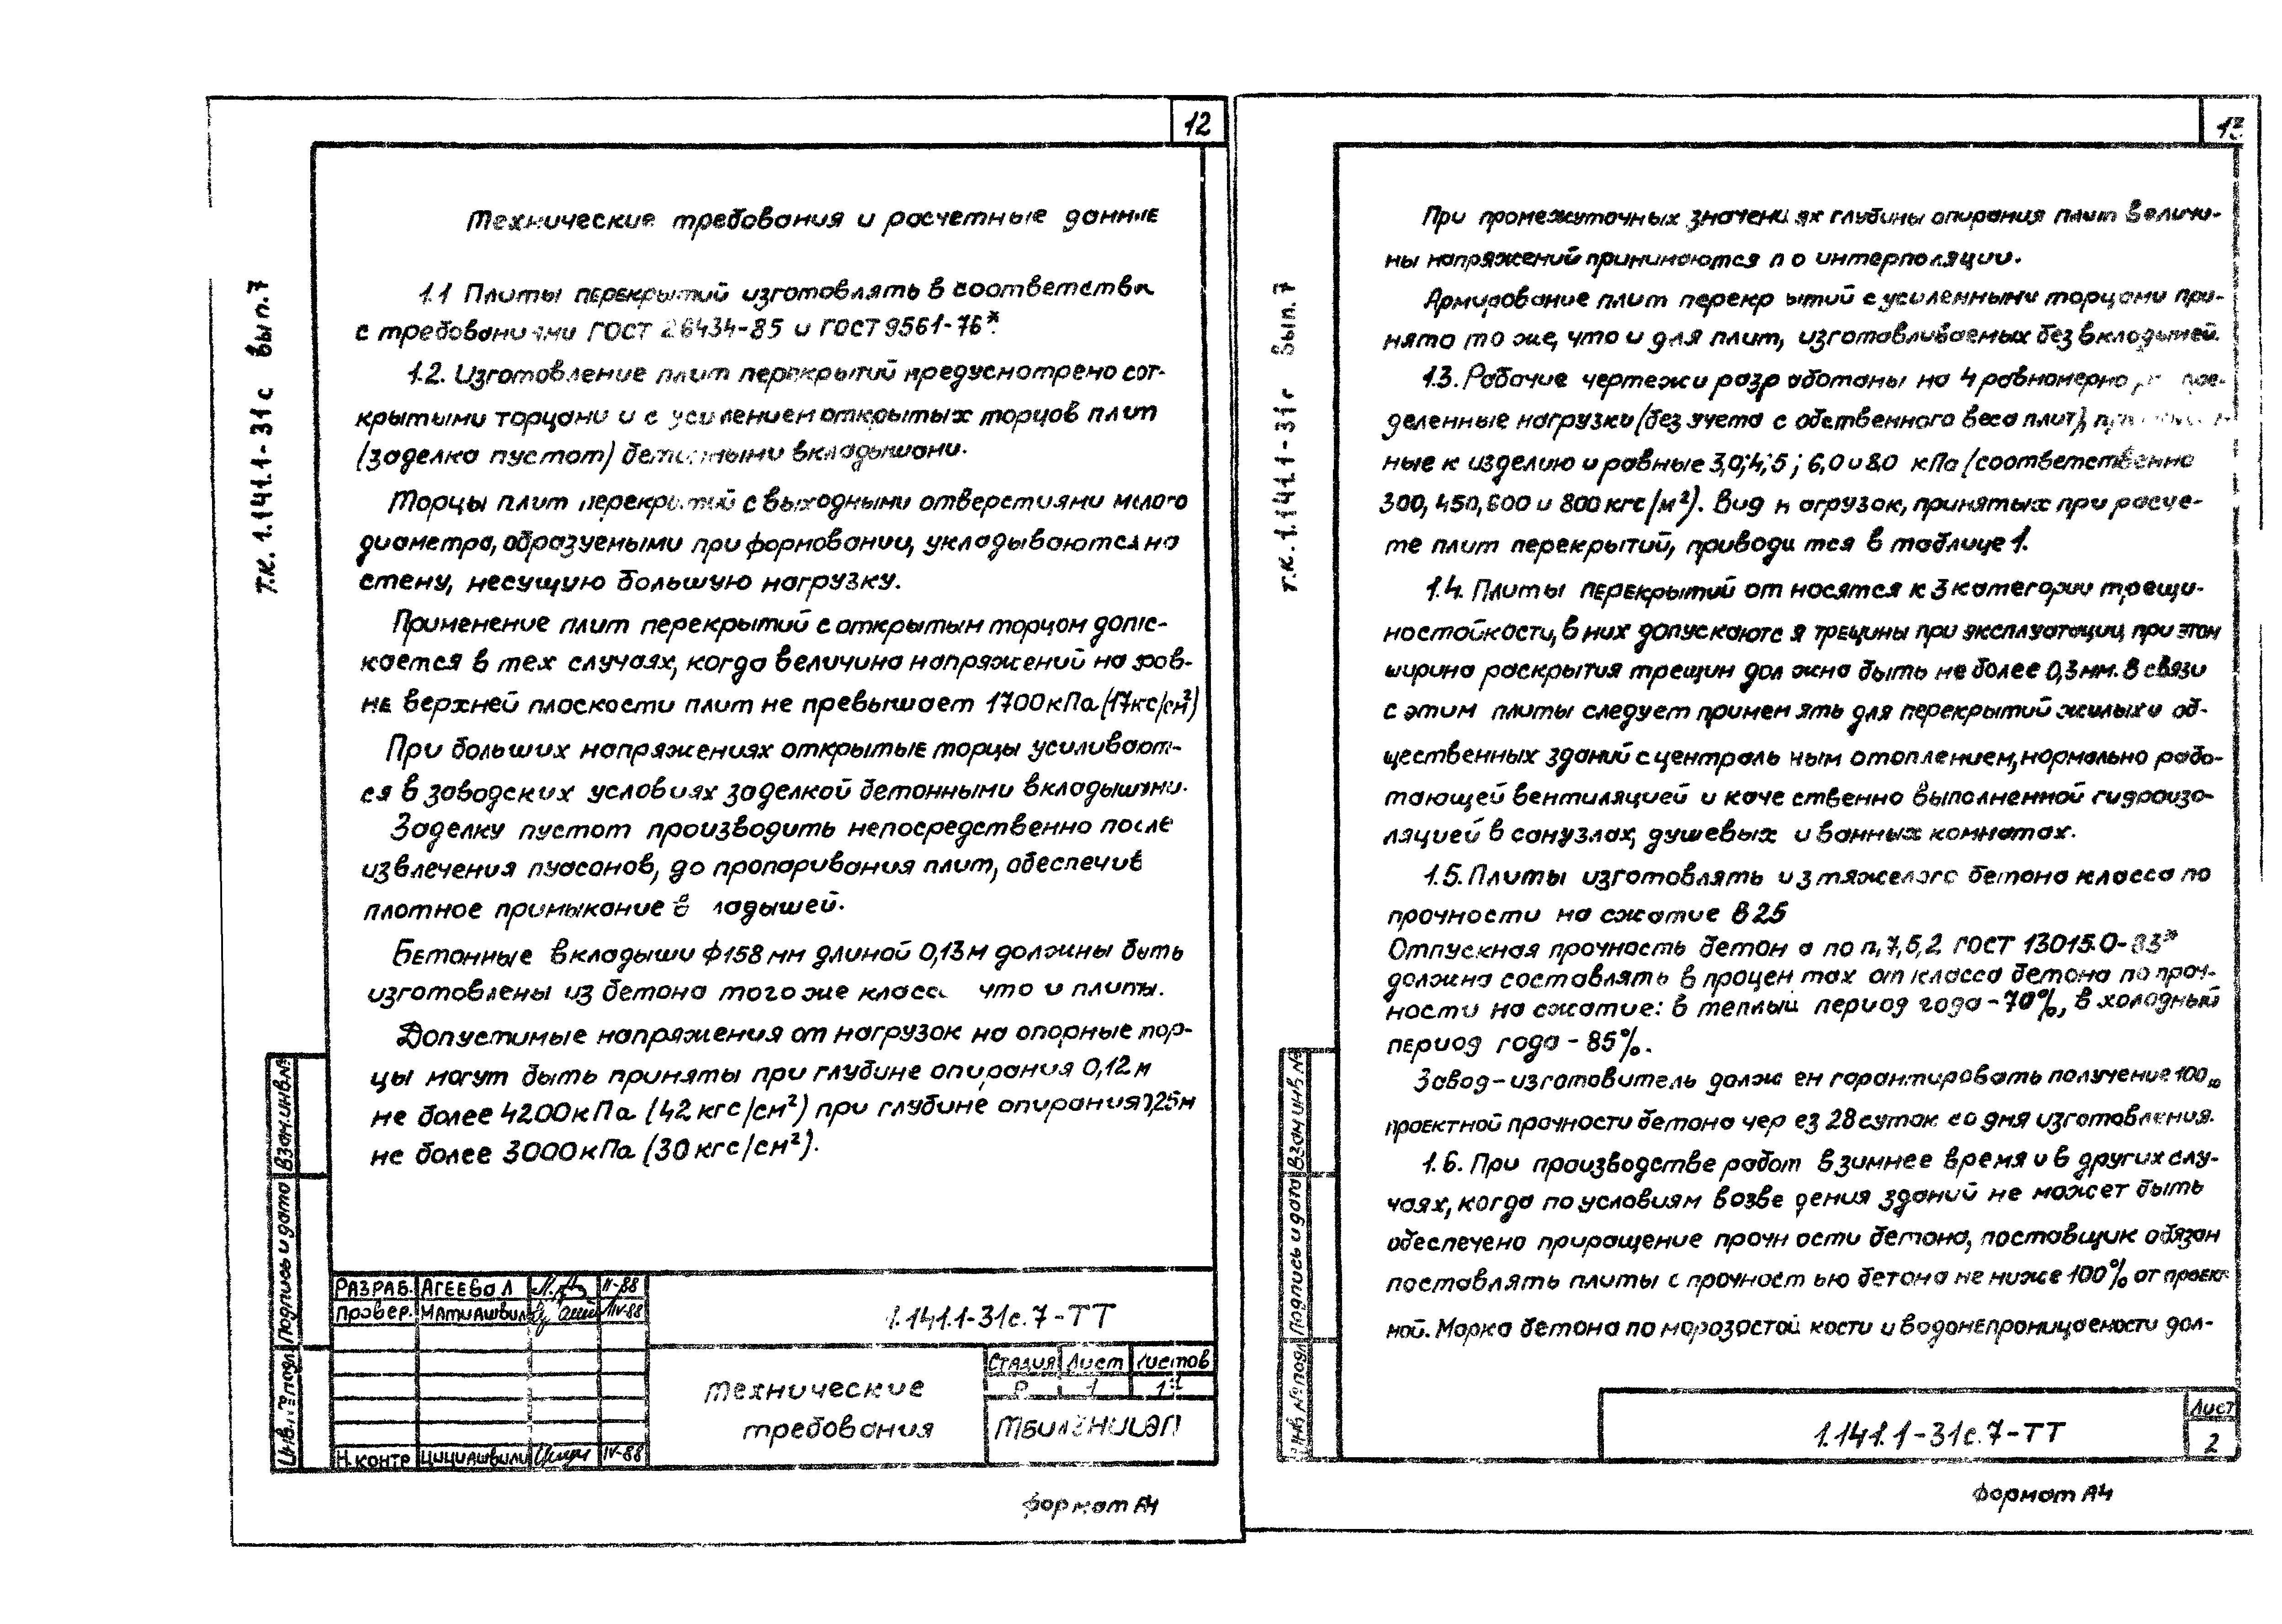 12
т.к. 1.141.1-31с вып.7
Технические требования и расчетные данные
1.1 Плиты перекрытий изготовлять в соответстви
с требованиями ГОСТ 26434-85 и ГОСТ 9561-76*.
1.2. Изготовление плит перекрытий предусмотрено с от-
крытыми торцами и с усилением открытых торцов плит
(заделка пустот) бетонными вкладышами.
Торцы плит перекрытий с выходными отверстиями малого
диаметра, образуемыми при формовании, укладываются на
стену, несущую большую нагрузку.
Применение плит перекрытий с открытым торцом допус-
кается в тех случаях, когда величина напряжений на уров-
не верхней плоскости плит не превышает 1700 кПа (17кгс/см²)
При больших напряжениях открытые торцы усиливают-
ся в заводских условиях заделкой бетонными вкладышами.
Заделку пустот производить непосредственно после
извлечения пуасонов, до пропаривания плит, обеспечив
плотное примыкание вкладышей.
Бетонные вкладыши ф158 мм длиной 0,13м должны быть
изготовлены из бетона того же класса что и плиты.
Допустимые напряжения от нагрузок на опорные тор-
цы могут быть приняты при глубине опирания 0,12 м
не более 4200 кПа (42 кгс/см²) при глубине опирания 0,25м
не более 3000 кПа (30 кгс/см²).
Взам.инв.№
Подпись и дата
Инв.№ подл
Разраб. Агеева Л II-88
Провер. Матиашвили IV-88
Н.контр Цициашвили IV-88
1.141.1-31с.7-ТТ
Технические
требования
Стадия Лист Листов
Р 1
ТбилЗНИИЭП
Формат А4
13
т.к. 1.141.1-31с Вып.7
При промежуточных значениях глубины опирания плит величи-
ны напряжений принимаются по интерполяции.
Армирование плит перекрытий с усиленными торцами при-
нято то же, что и для плит, изготавливаемых без вкладышей.
1.3. Рабочие чертежи разработаны на 4 равномерно
деленные нагрузки (без учета собственного веса плит),
ные к изделию и равные 3,0; 4,5; 6,0 и 8.0 кПа (соответственно
300, 450, 600 и 800 кгс/м²). Вид нагрузок, принятых при расче-
те плит перекрытий, приводится в таблице 1.
1.4. Плиты перекрытий относятся к 3 категории трещи-
ностойкости, в них допускаются трещины при эксплуатации, при этом
ширина раскрытия трещин должна быть не более 0,3 мм. В связи
с этим плиты следует применять для перекрытий жилых и об-
щественных зданий с центральным отоплением, нормально рабо-
тающей вентиляцией и качественно выполненной гидроизо-
ляцией в санузлах, душевых и ванных комнатах.
1.5. Плиты изготовлять из тяжелого бетона класса по
прочности на сжатие В25
Отпускная прочность бетона по п, 7, 5, 2 ГОСТ 13015.0-83*
должна составлять в процентах от класса бетона по проч-
ности на сжатие: в теплый период года - 70%, в холодный
период года - 85%.
Завод-изготовитель должен гарантировать получение 100%
проектной прочности бетона через 28 суток со дня изготовления.
1.6. При производстве работ в зимнее время и в других слу-
чаях, когда по условиям возведения зданий не может быть
обеспечено приращение прочности бетона, поставщик обязан
поставлять плиты с прочностью бетона не ниже 100% от проект-
ной. Марка бетона по морозостойкости и водонепроницаемости дол-
Взам инв №
Подпись и дата
Инв № подл
1.141.1-31с.7-ТТ
Лист
2
Формат А4